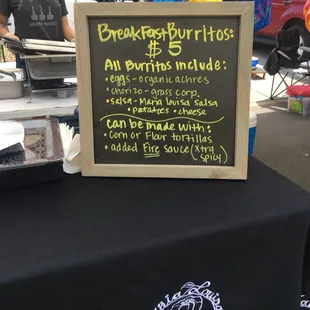 BreakFast Burritos:
$5
All Burritos Include:
• eggs - organic achres
• chorizo - grass corp.
• Salsa - Maria Louisa Salsa
• potatoes • cheese
can be made with:
• corn or Flair tortillas
• added Fire Sauce (Xtra
Spicy)